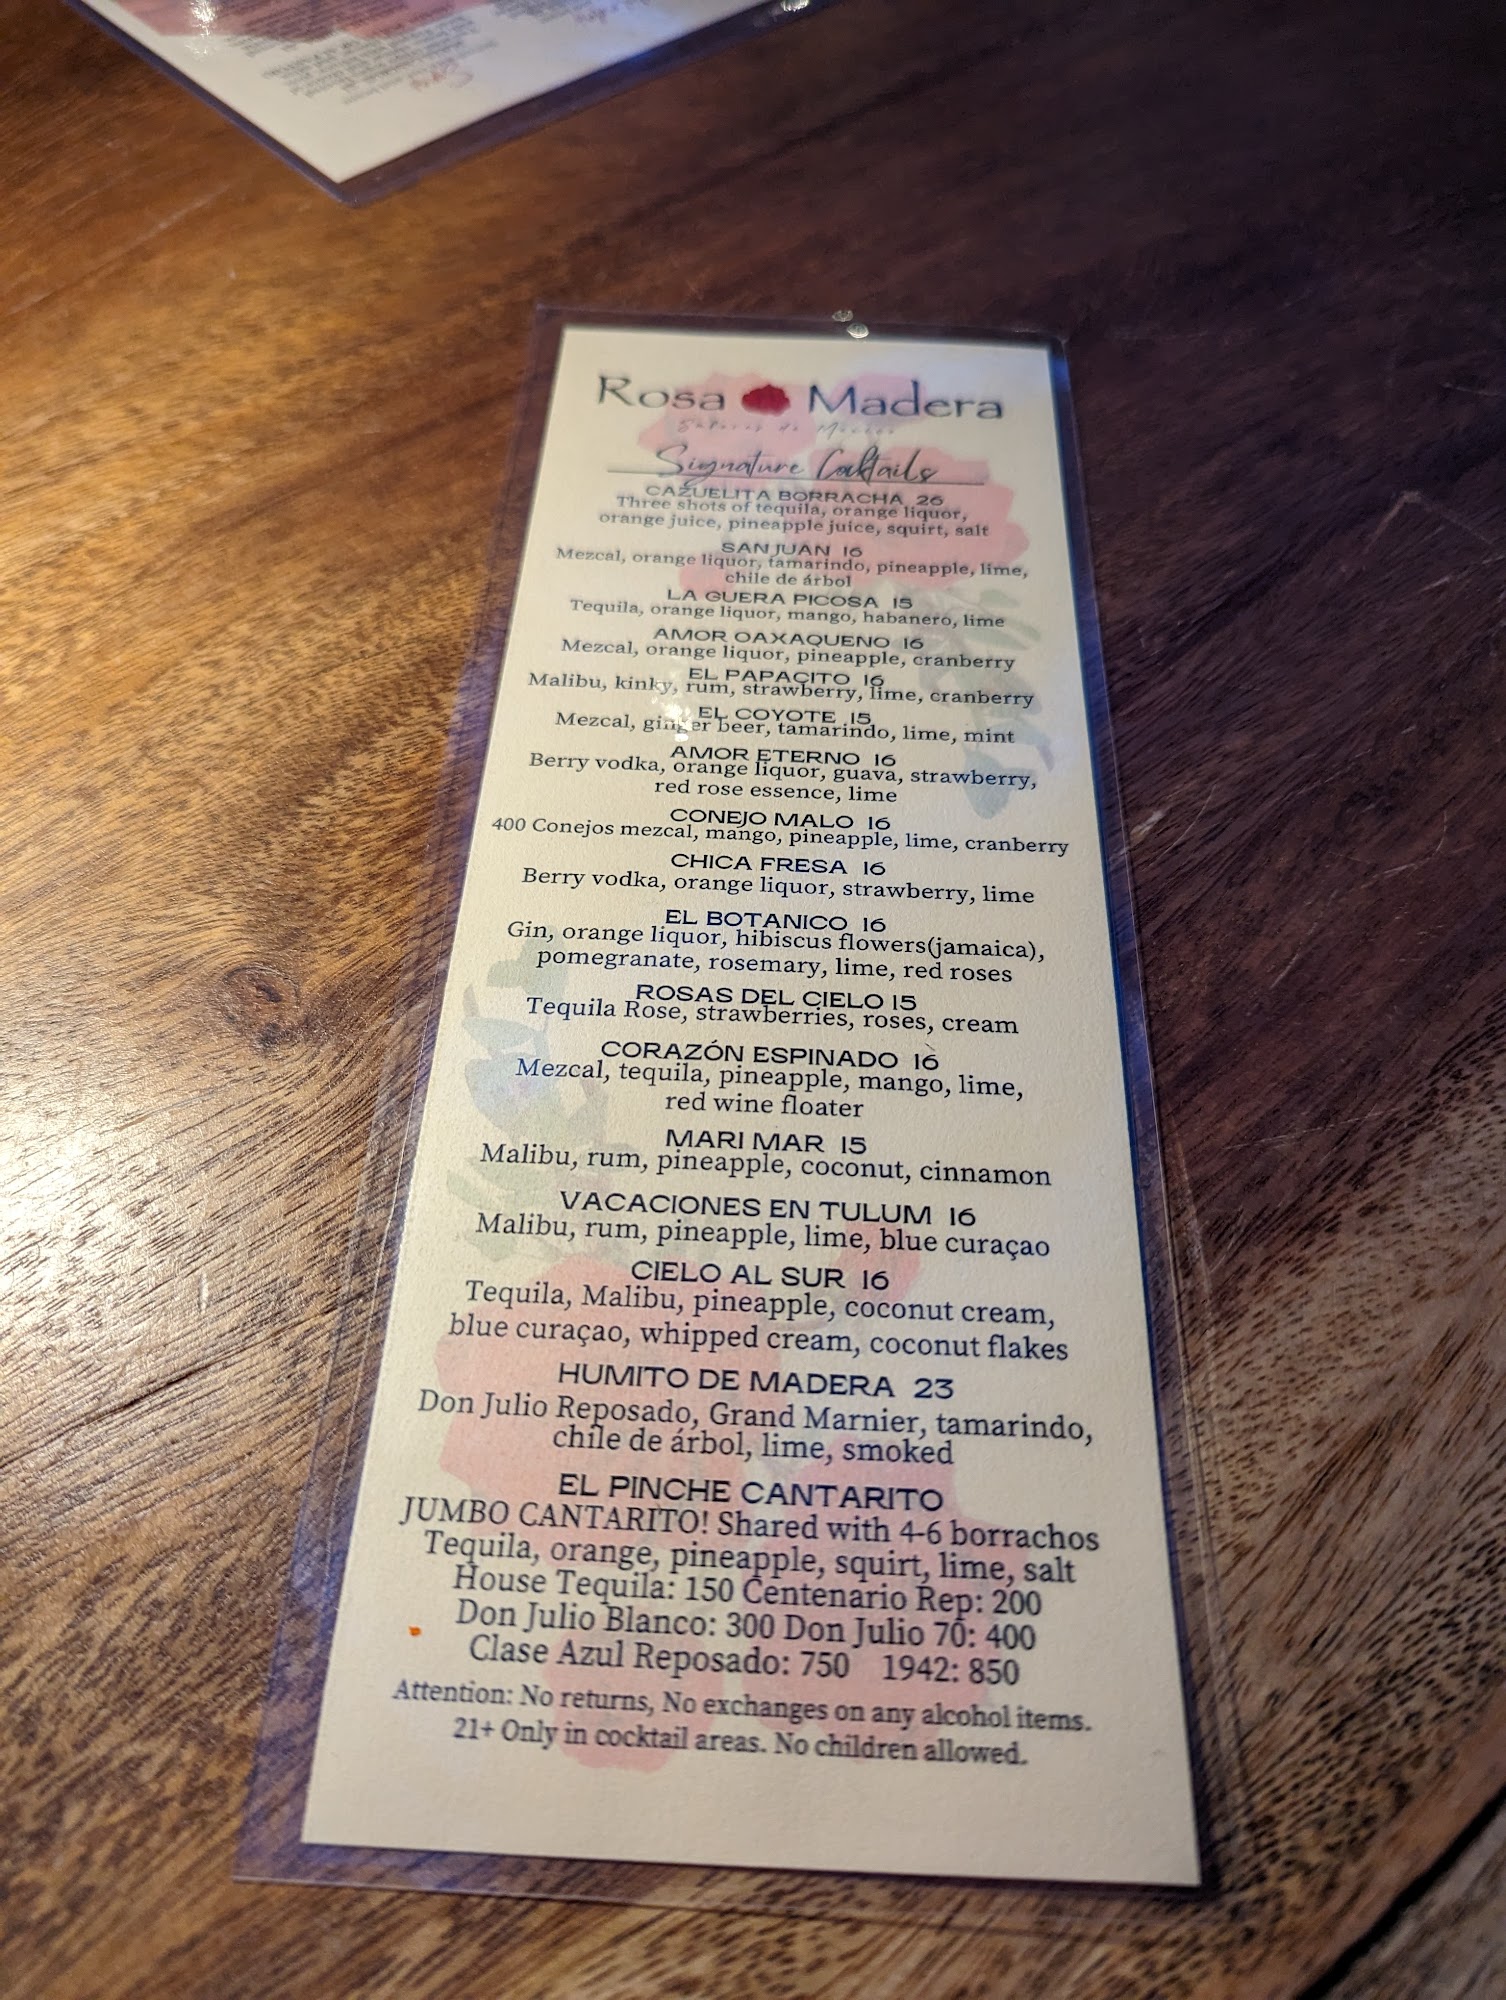 Rosa Madera
Sabores de México
Signature Cocktails
CAZUELITA BORRACHA 26
Three shots of tequila, orange liquor,
orange juice, pineapple juice, squirt, salt
SAN JUAN 16
Mezcal, orange liquor, tamarindo, pineapple, lime,
chile de árbol
LA GUERA PICOSA 15
Tequila, orange liquor, mango, habanero, lime
AMOR OAXAQUENO 16
Mezcal, orange liquor, pineapple, cranberry
EL PAPACITO 16
Malibu, kinky, rum, strawberry, lime, cranberry
EL COYOTE 15
Mezcal, ginger beer, tamarindo, lime, mint
AMOR ETERNO 16
Berry vodka, orange liquor, guava, strawberry,
red rose essence, lime
CONEJO MALO 16
400 Conejos mezcal, mango, pineapple, lime, cranberry
CHICA FRESA 16
Berry vodka, orange liquor, strawberry, lime
EL BOTANICO 16
Gin, orange liquor, hibiscus flowers(jamaica),
pomegranate, rosemary, lime, red roses
ROSAS DEL CIELO 15
Tequila Rose, strawberries, roses, cream
CORAZÓN ESPINADO 16
Mezcal, tequila, pineapple, mango, lime,
red wine floater
MARI MAR 15
Malibu, rum, pineapple, coconut, cinnamon
VACACIONES EN TULUM 16
Malibu, rum, pineapple, lime, blue curaçao
CIELO AL SUR 16
Tequila, Malibu, pineapple, coconut cream,
blue curaçao, whipped cream, coconut flakes
HUMITO DE MADERA 23
Don Julio Reposado, Grand Marnier, tamarindo,
chile de árbol, lime, smoked
EL PINCHE CANTARITO
JUMBO CANTARITO! Shared with 4-6 borrachos
Tequila, orange, pineapple, squirt, lime, salt
House Tequila: 150 Centenario Rep: 200
Don Julio Blanco: 300 Don Julio 70: 400
Clase Azul Reposado: 750 1942: 850
Attention: No returns, No exchanges on any alcohol items.
21+ Only in cocktail areas. No children allowed.